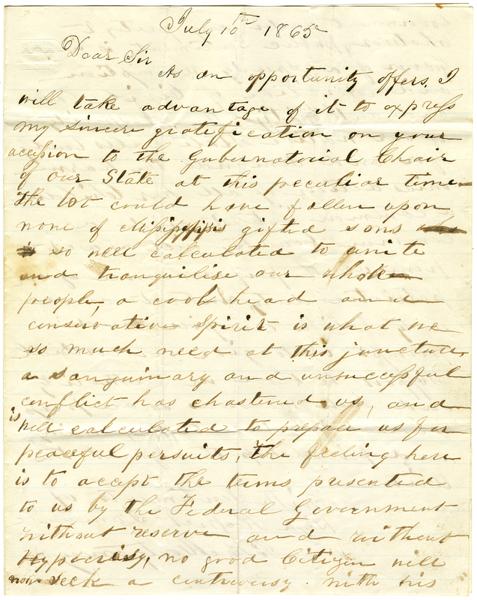 July 10th 1865
Dear Sir
As an opportunity offers, I
will take advantage of it to express
my sincere gratification on your
accession to the Gubernatorial Chair
of our State at this peculiar time
the lot could have fallen upon
none of Mississippis gifted sons
so well calculated to unite
and tranquilise our whole
people, a cool head and
conservative spirit is what we
so much need at this juncture
a sanguinary and unsuccessful
conflict has chastened us, and
is well calculated to prepare us for
peaceful pursuits, the feeling here
is to accept the terms presented
to us by the Federal Government
without reserve and without
hypocrisy, no good Citizen will
now seek a controversy with his